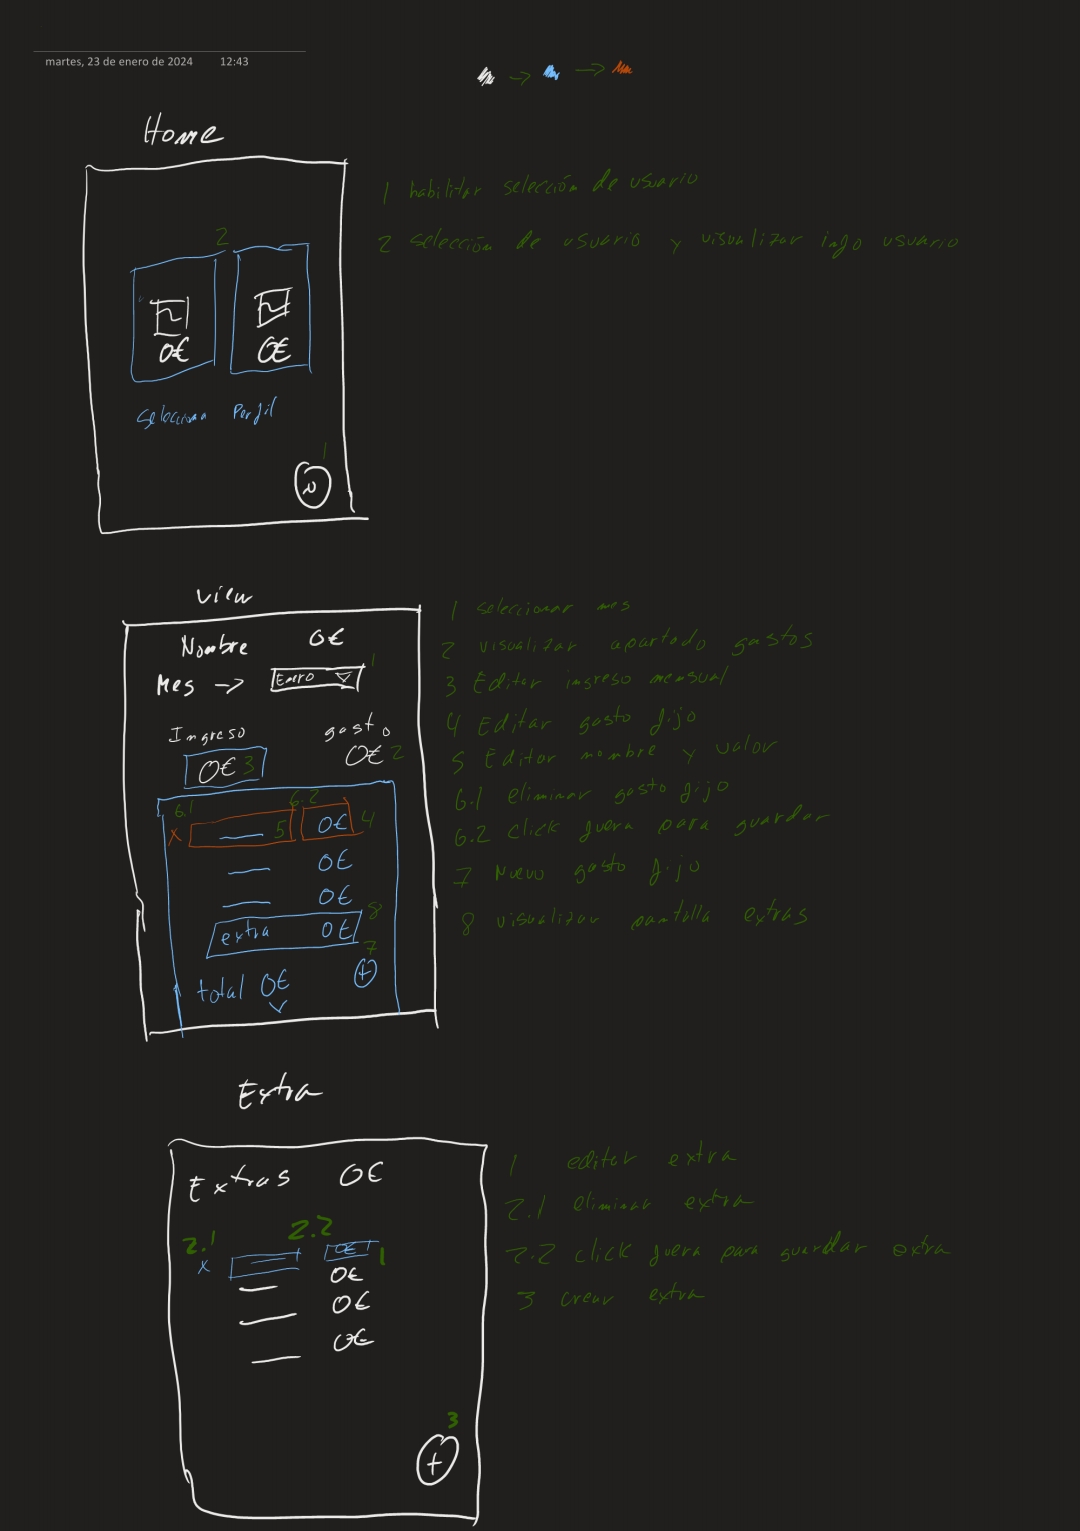 martes, 23 de enero de 2024 12:43
Home
1 habilitar selección de usuario
2 selección de usuario y visualizar info usuario
2
0€ 0€
Selecciona Perfil
1
View
Nombre 0€
1
Mes -> Enero
Ingreso gasto
0€ 3 0€ 2
6.1 6.2
x 5 0€ 4
0€
0€
8
extra 0€
7
total 0€ +
1 seleccionar mes
2 visualizar apartado gastos
3 Editar ingreso mensual
4 Editar gasto fijo
5 Editar nombre y valor
6.1 eliminar gasto fijo
6.2 click fuera para guardar
7 Nuevo gasto fijo
8 visualizar pantalla extras
Extra
Extras 0€
2.1 2.2
x 0€ 1
0€
0€
0€
3
+
1 editar extra
2.1 eliminar extra
2.2 click fuera para guardar extra
3 crear extra